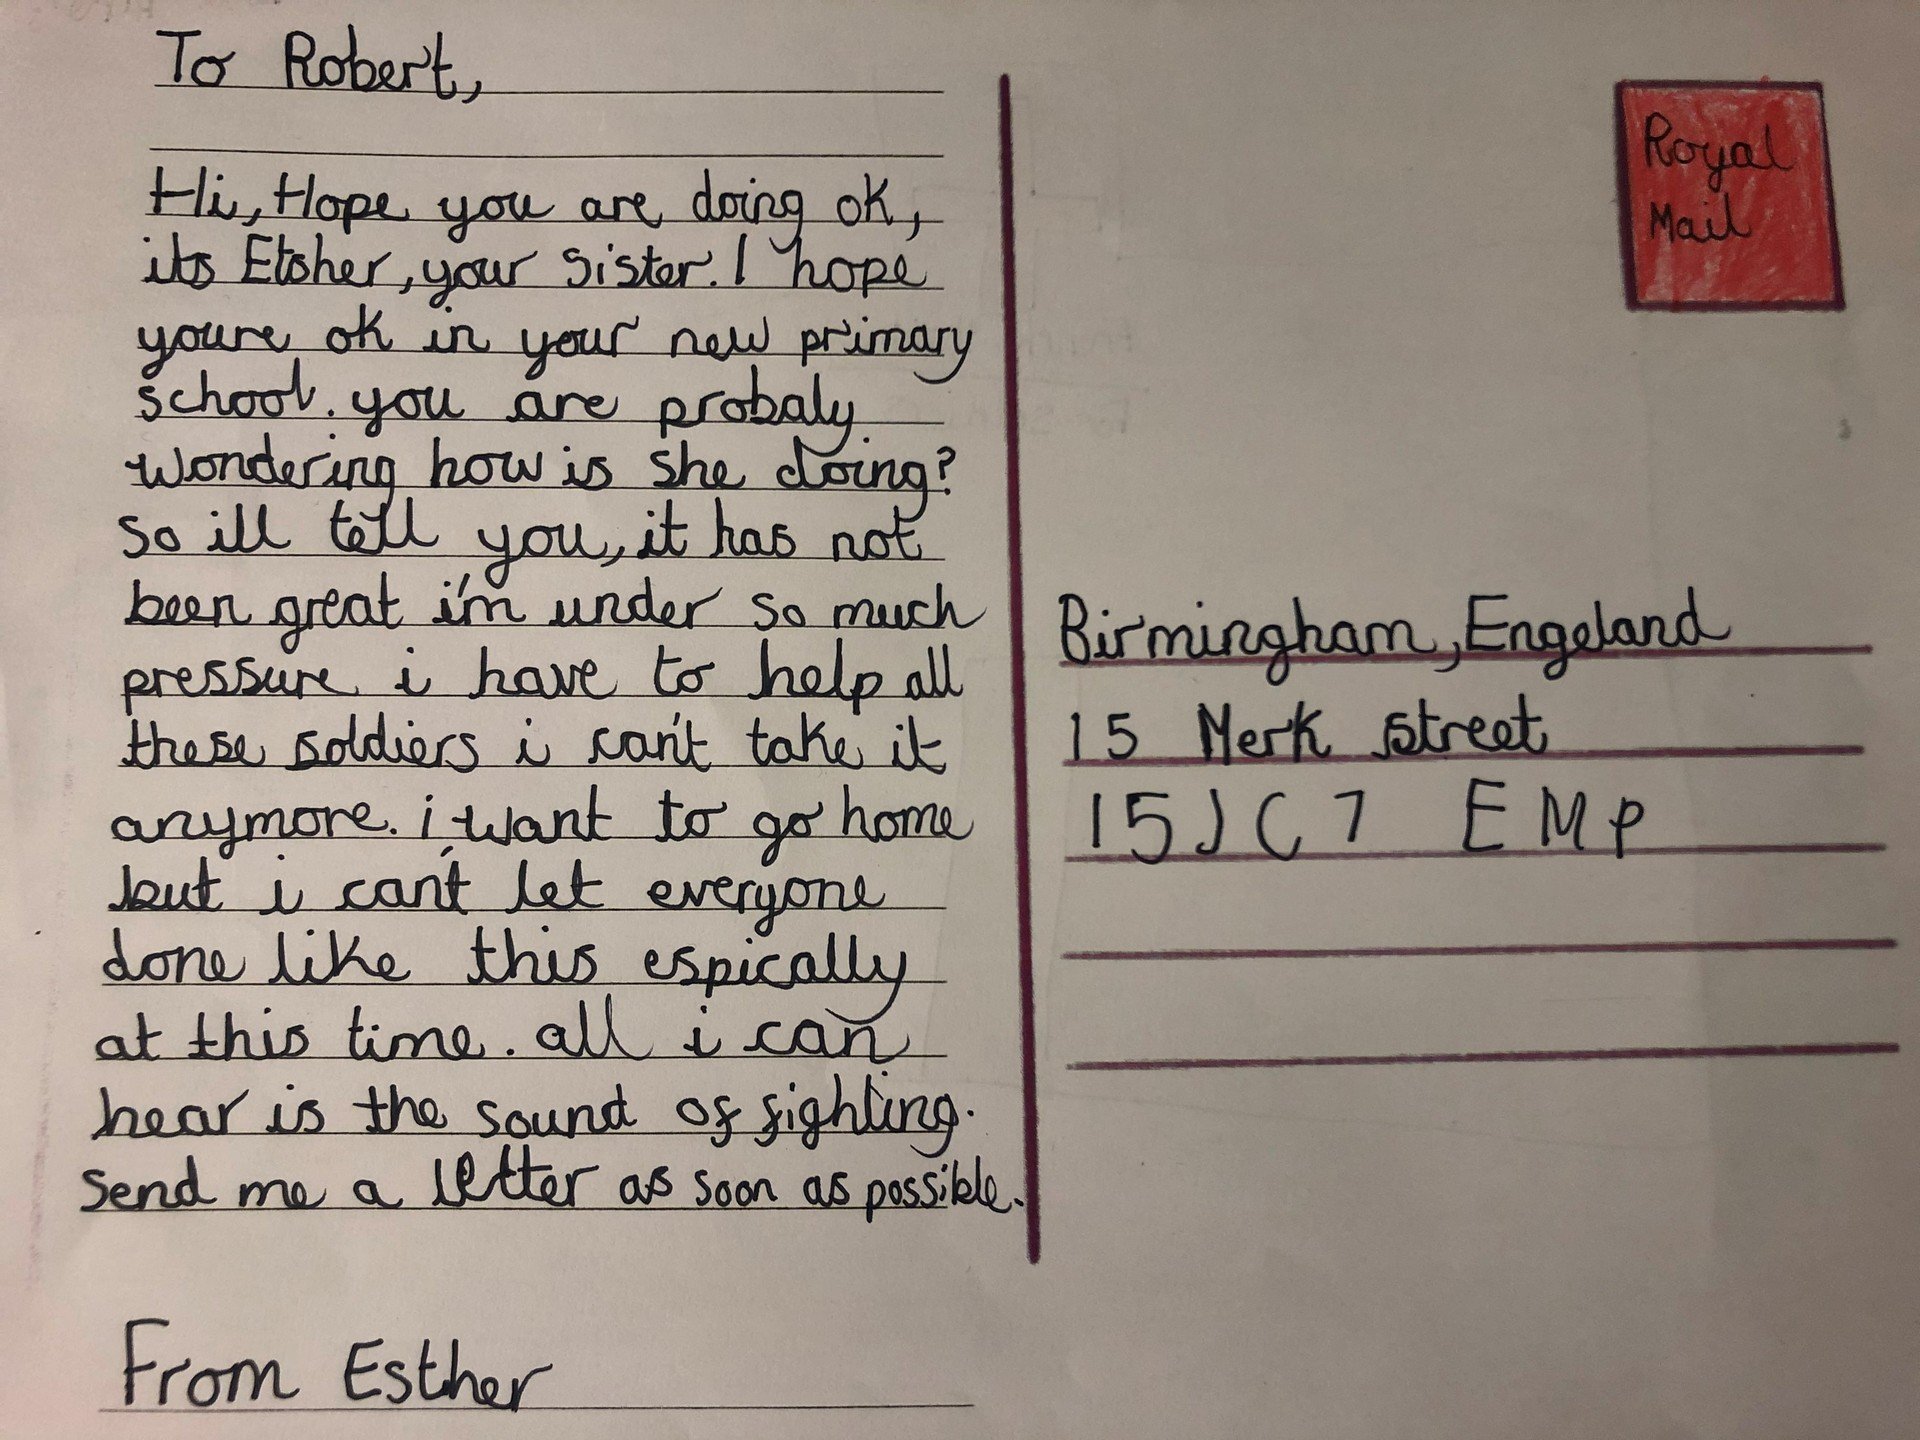 To Robert,
Hi, Hope you are doing ok,
its Etsher, your sister. I hope
youre ok in your new primary
school. you are probaly
wondering how is she doing?
so ill tell you, it has not
been great i'm under so much
pressure i have to help all
these soldiers i can't take it
anymore. i want to go home
but i can't let everyone
done like this espically
at this time. all i can
hear is the sound of fighting.
send me a letter as soon as possible.
From Esther
Royal
Mail
Birmingham, Engeland
15 Merk street
15JC7 EMP